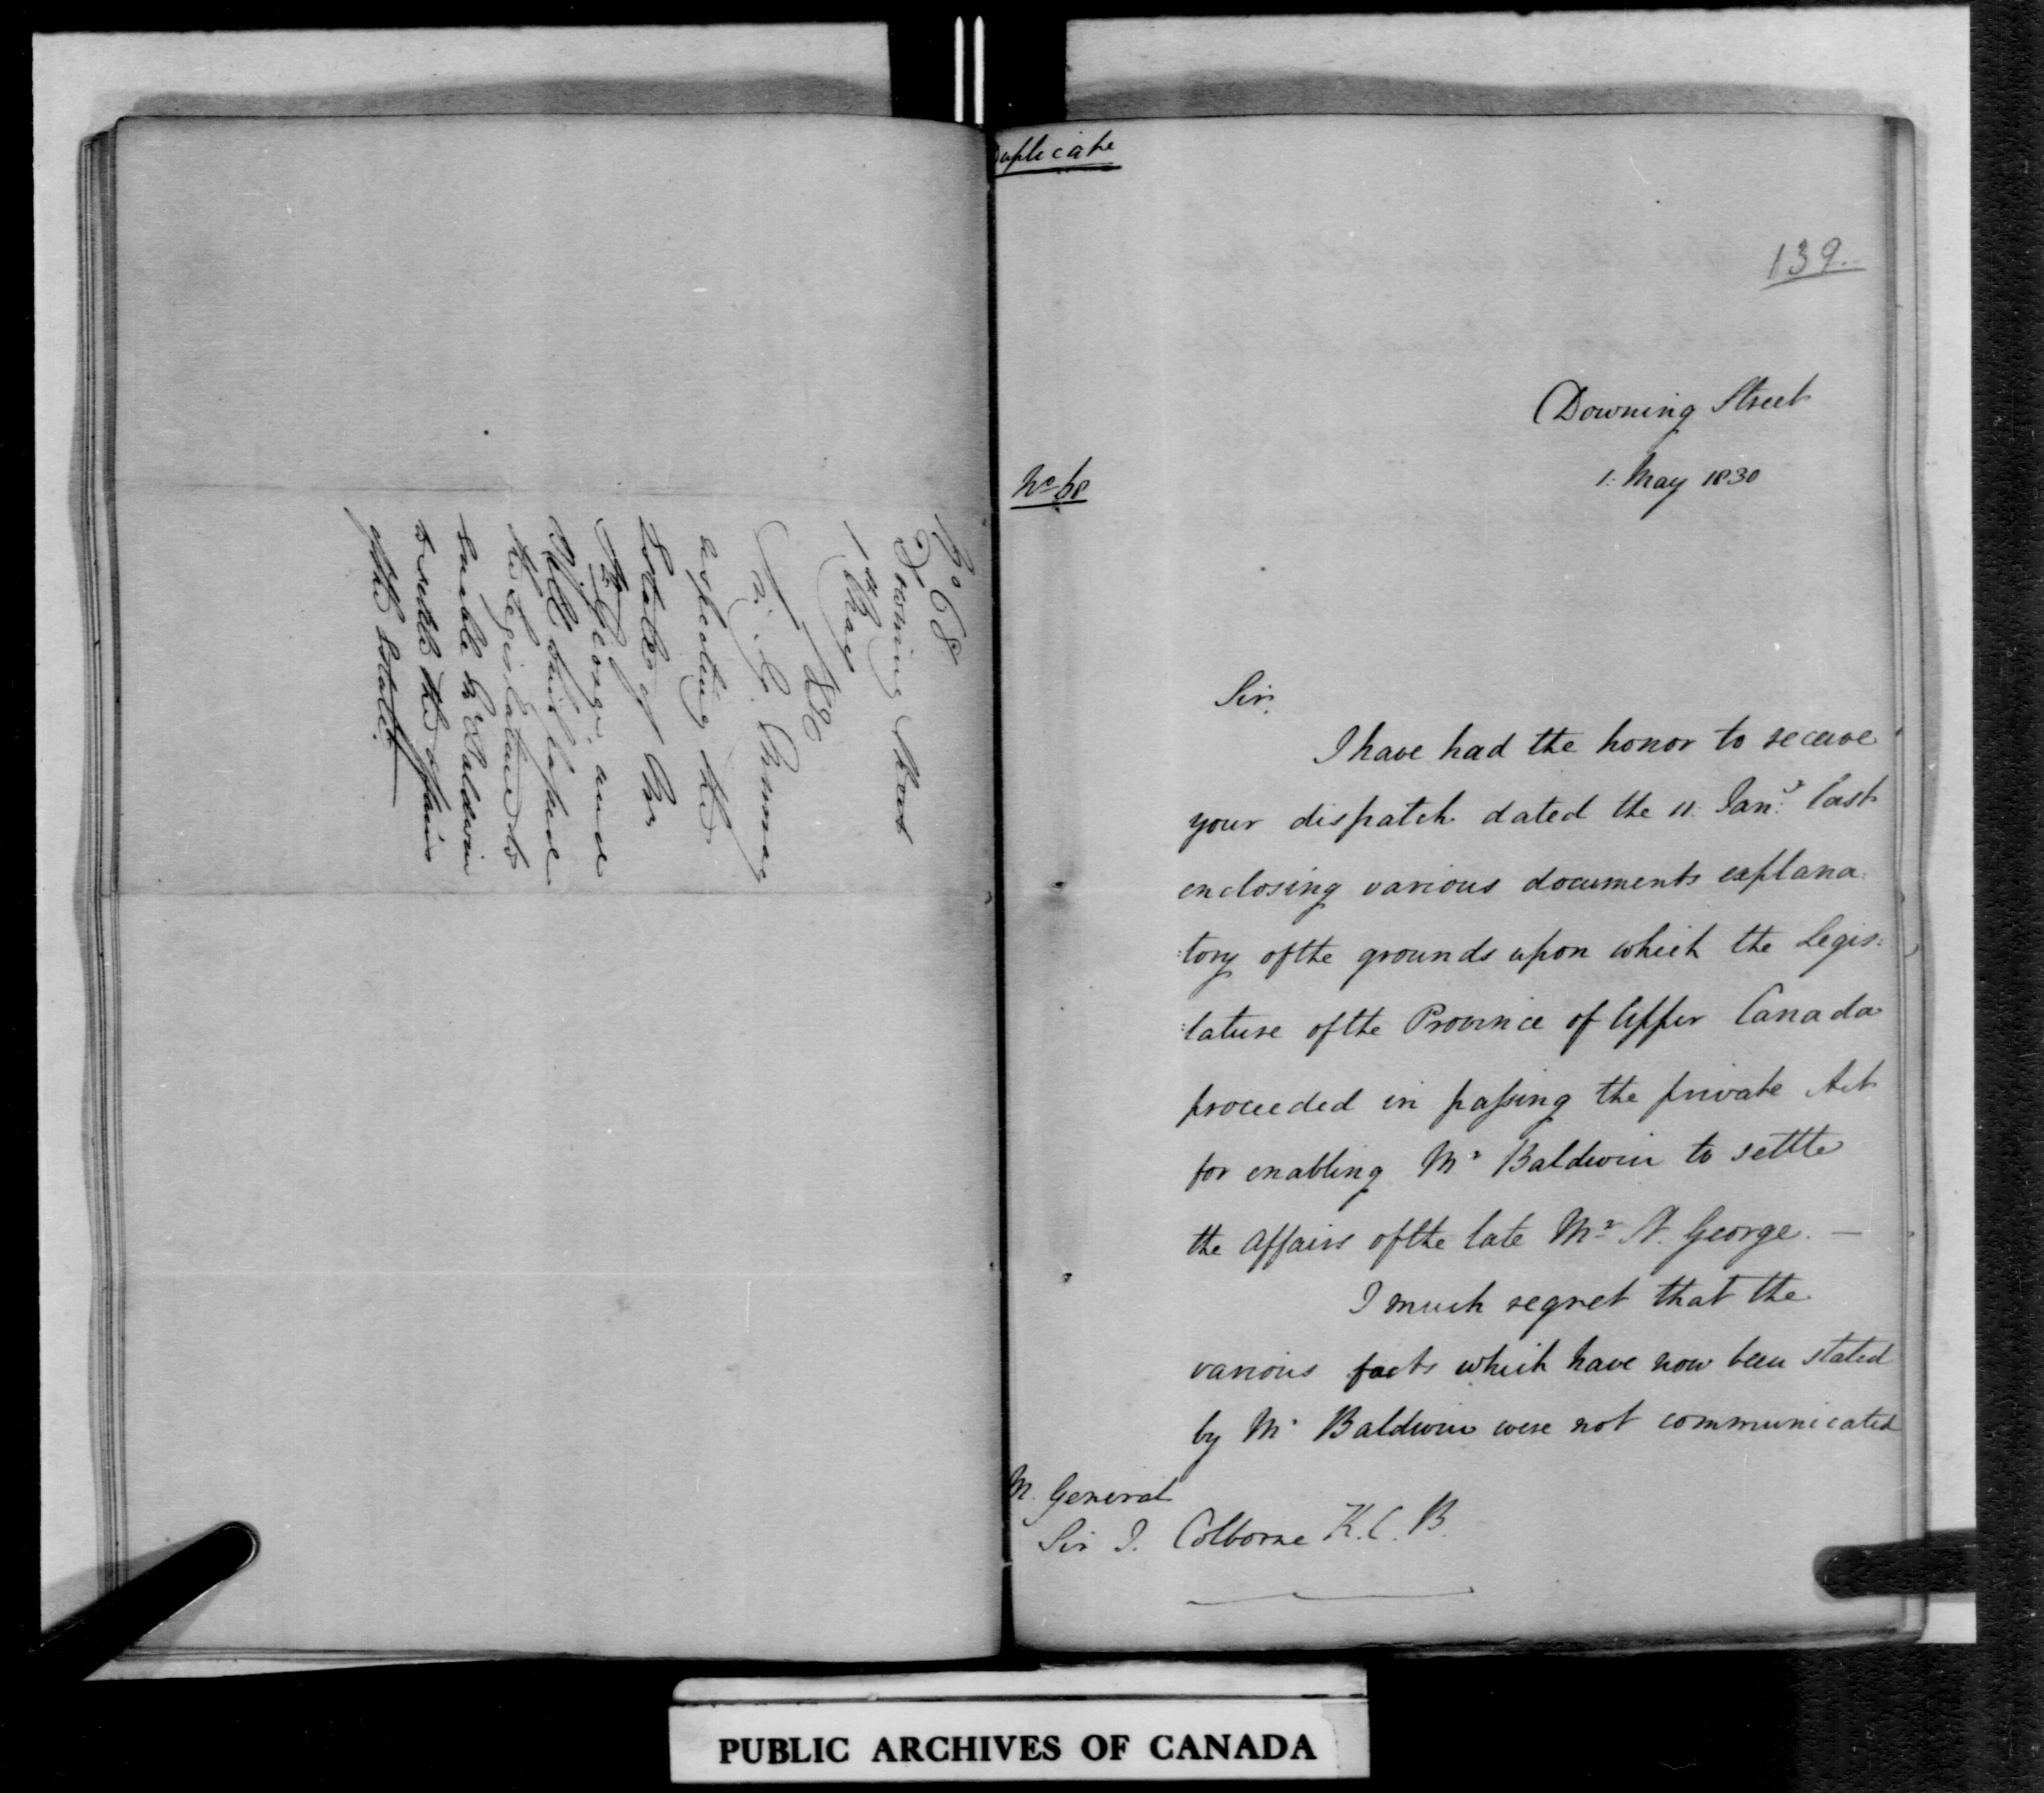 No 68
Downing Street
1st May
Sir G. Murray
respecting the
Estates of Mr
St. George, and
Bill passed
the Legislature to
enable Mr Baldwin
to settle the affairs
of the Estate
Duplicate
139.
Downing Street
No 68
1. May 1830
Sir,
I have had the honor to receive
your dispatch dated the 11. Jany. last
enclosing various documents explana:
:tory of the grounds upon which the Legis:
:lature of the Province of Upper Canada
proceeded in passing the private Act
for enabling Mr Baldwin to settle
the affairs of the late Mr St. George. —
I much regret that the
various facts which have now been stated
by Mr Baldwin were not communicated
M. General
Sir J. Colborne K.C.B.
PUBLIC ARCHIVES OF CANADA